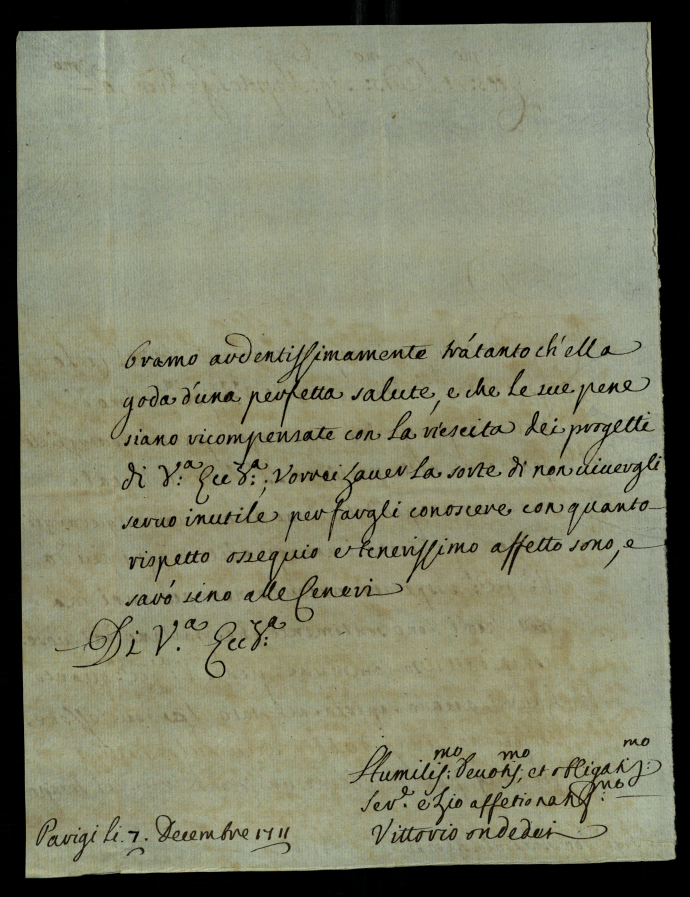 bramo ardentissimamente trátanto ch'ella
goda d'una perfetta salute, e che le sue pene
siano ricompensate con la riescita dei progetti
di V:ª Eccª:; Vorrei haver la sorte di non vivergli
servo inutile per fargli conoscere con quanto
rispetto ossequio e tenerissimo affetto sono, e
saró sino alle Ceneri
Di V.ª Eccª:
Humilis:mo Devotis:mo, et obligatis:mo
Ser.e e Zio affetionatis:mo
Parigi li. 7. Decembre 1711
Vittorio ondedei